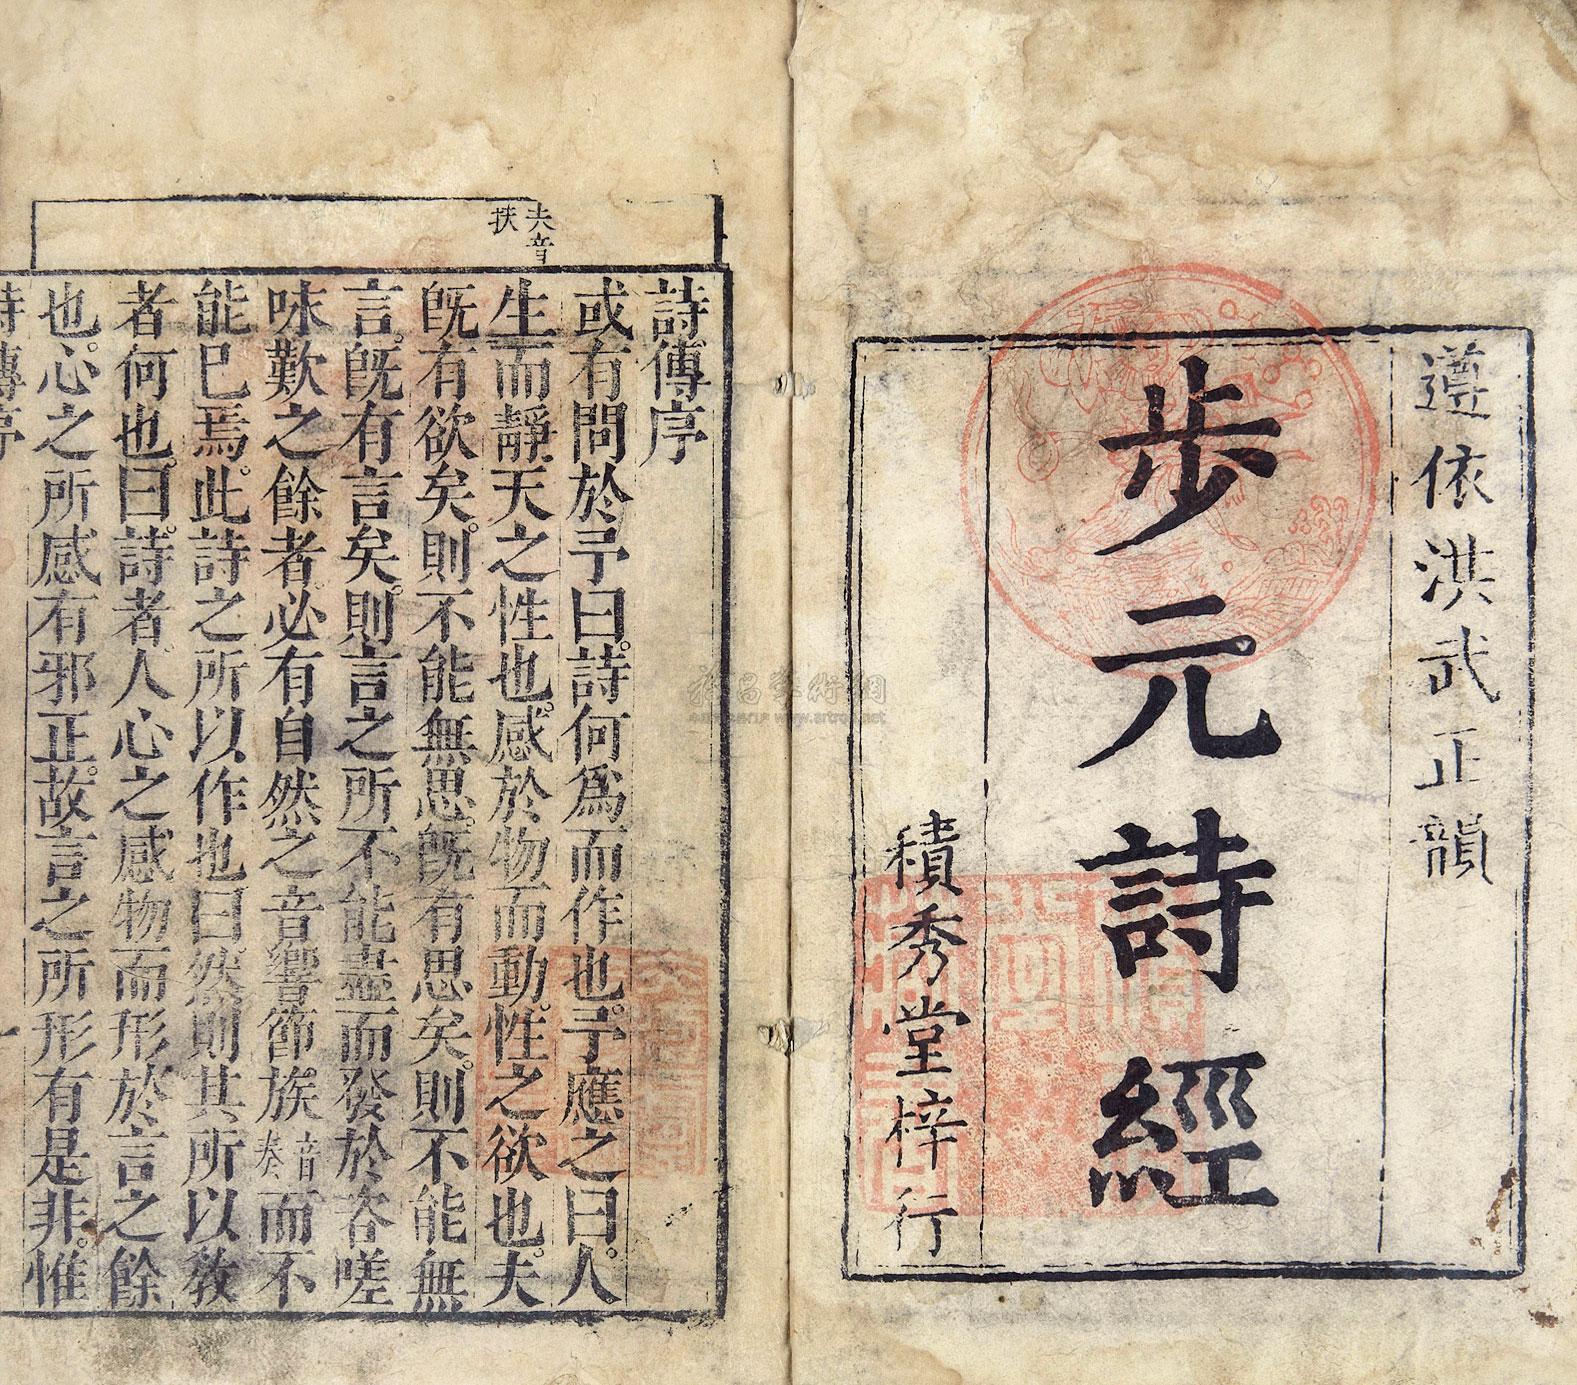 遵依洪武正韻
步元詩經
積秀堂梓行
夫音
扶
詩傳序
或有問於予曰。詩何爲而作也。予應之曰。人
生而靜。天之性也。感於物而動。性之欲也。夫
旣有欲矣。則不能無思。旣有思矣。則不能無
言。旣有言矣。則言之所不能盡而發於咨嗟
咏歎之餘者。必有自然之音響節族。音奏而不
能已焉。此詩之所以作也。曰。然則其所以敎
者何也。曰。詩者。人心之感物而形於言之餘
也。心之所感有邪正。故言之所形有是非。惟
詩傳序
www.artron.net